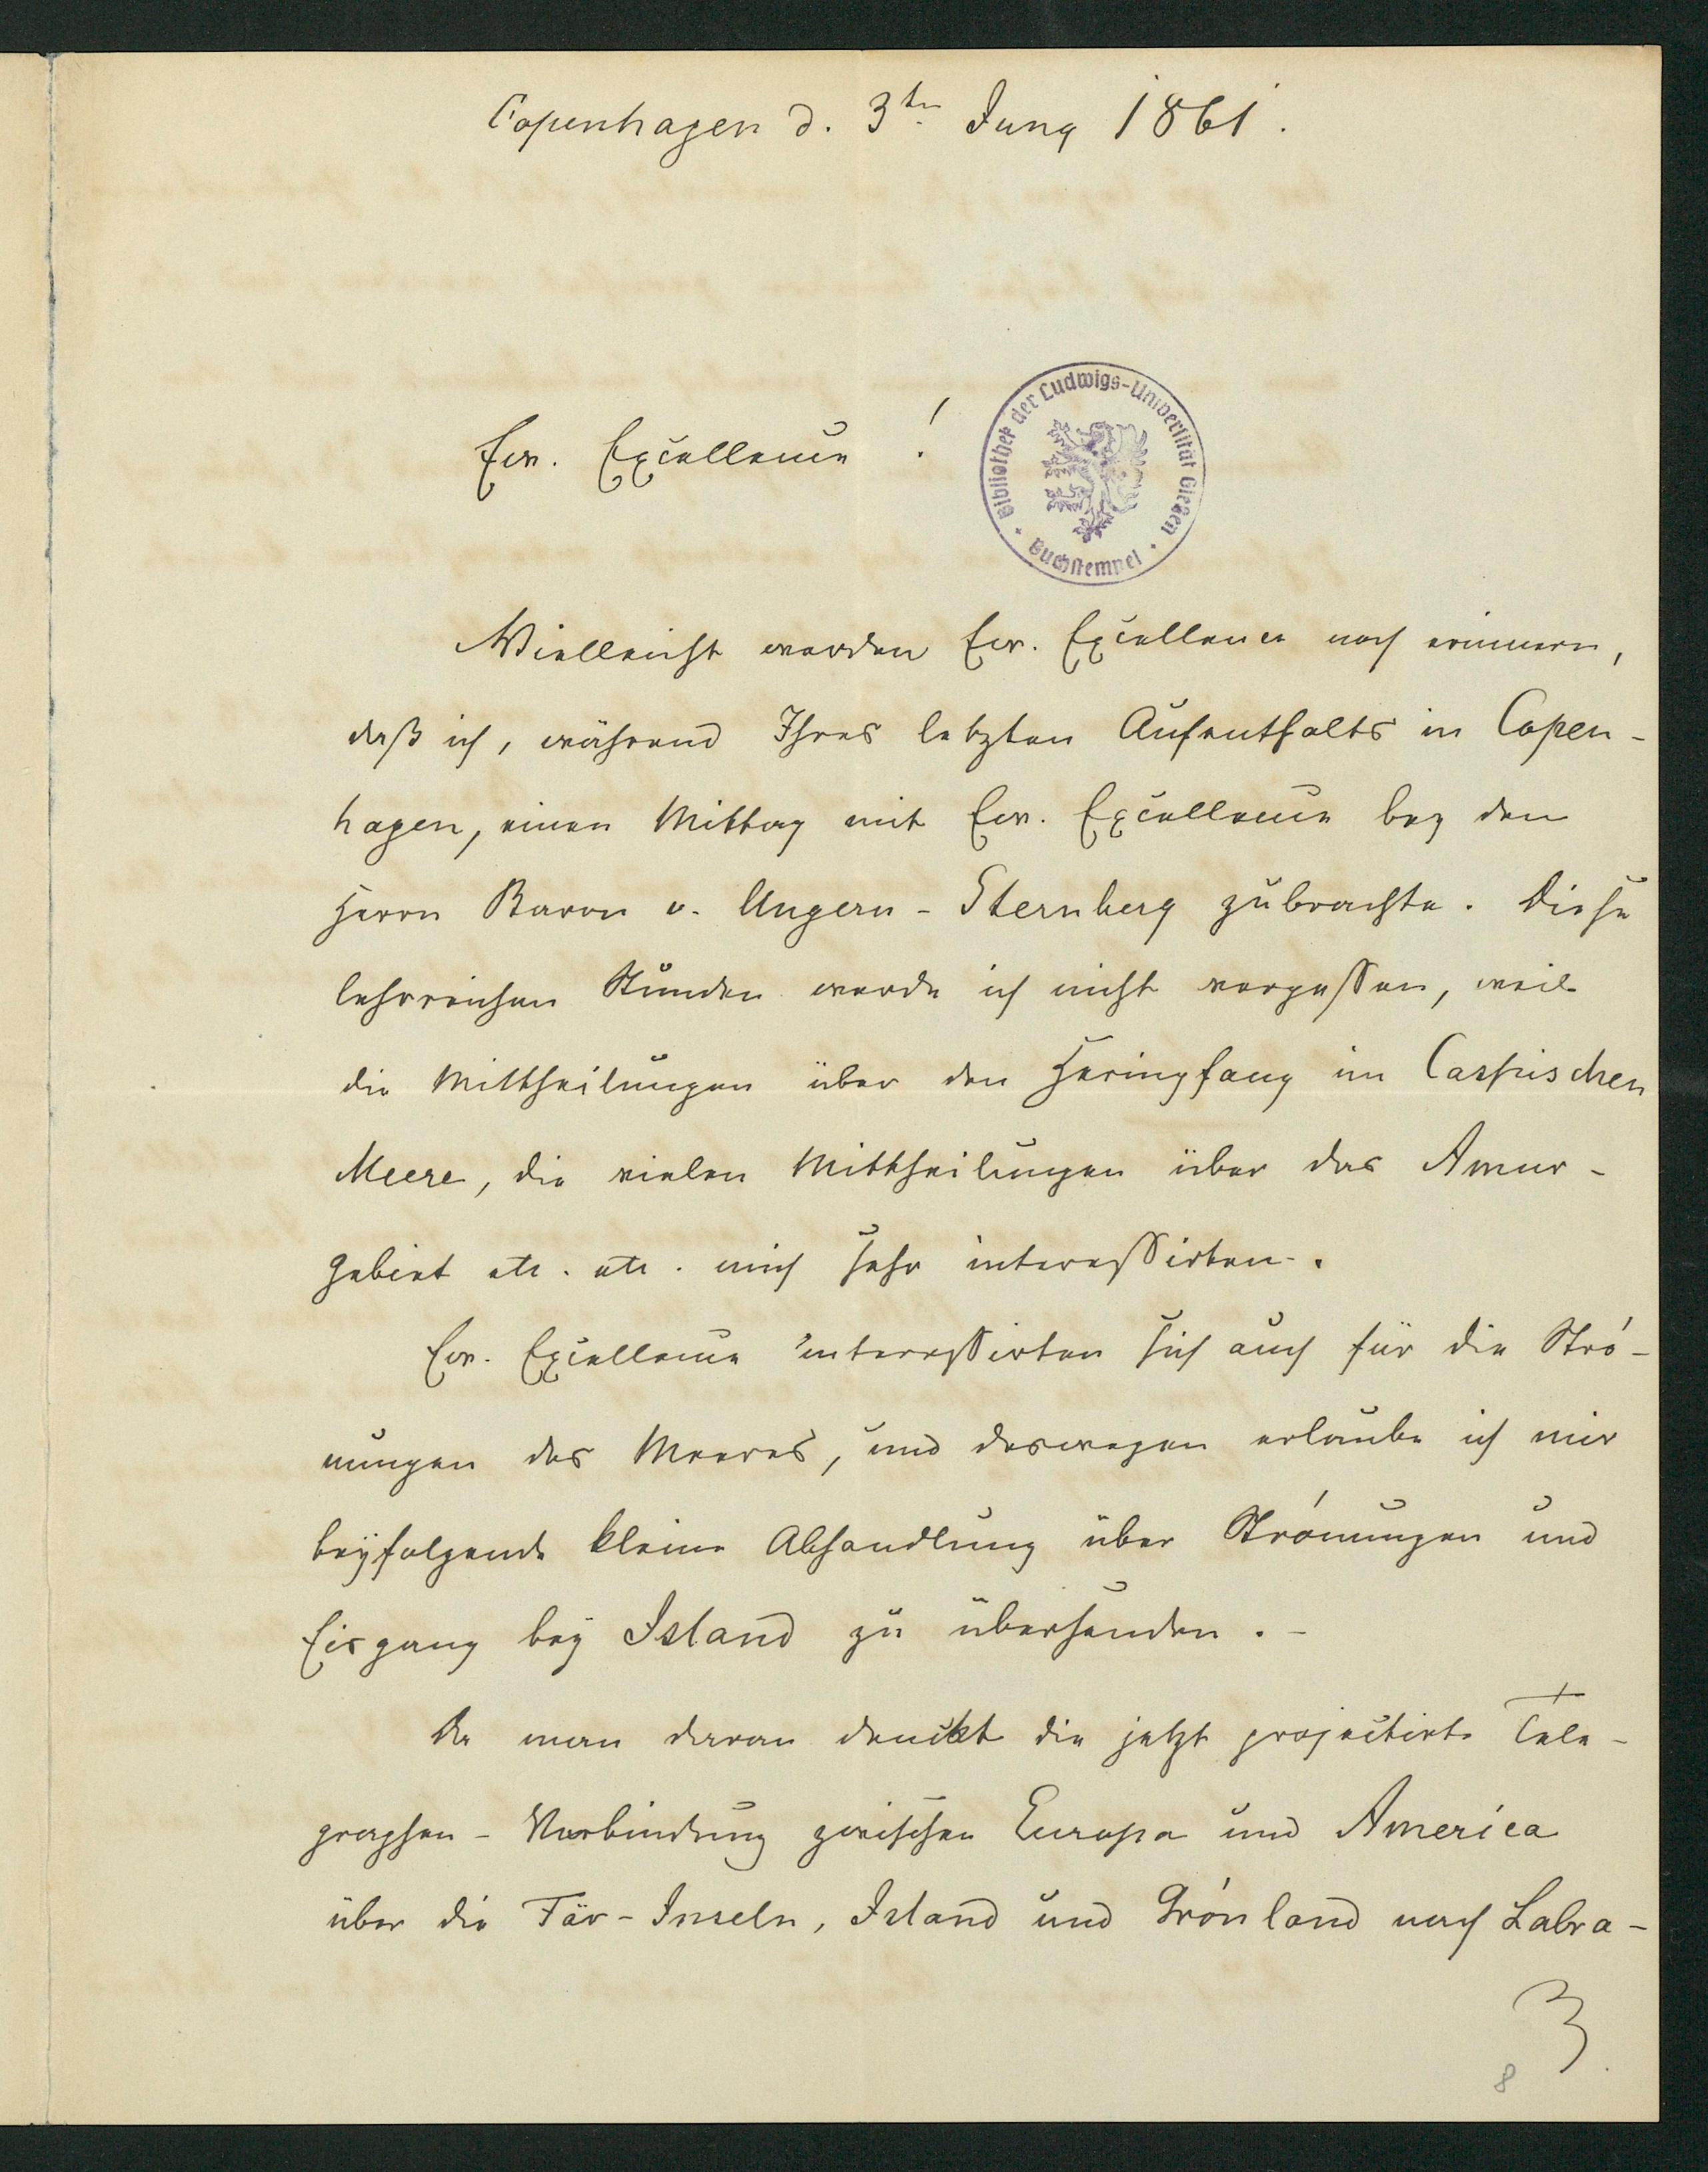 Copenhagen d. 3ten Juny 1861.
Ew. Excellence!
Bibliothek der Ludwigs-Universität Gießen
Buchstempel
Vielleicht werden Ew. Excellence noch erinnern,
daß ich, während Ihres letzten Aufenthalts in Copen-
hagen, einen Mittag mit Ew. Excellence bey den
Herrn Baron v. Ungern-Sternberg zubrachte. Diese
lehrreichen Stunden werde ich nicht vergessen, weil
die Mittheilungen über den Heringfang im Caspischen
Meere, die vielen Mittheilungen über das Amur-
gebiet etc. etc. mich sehr interessirten.
Ew. Excellence interessirten sich auch für die Strö-
mungen des Meeres, und deswegen erlaube ich mir
beyfolgende kleine Abhandlung über Strömungen und
Eisgang bey Island zu übersenden. -
Da man daran denckt die jetzt projectirte Tele-
graphen-Verbindung zwischen Europa und America
über die Fär-Inseln, Island und Grönland nach Labra-
3
8